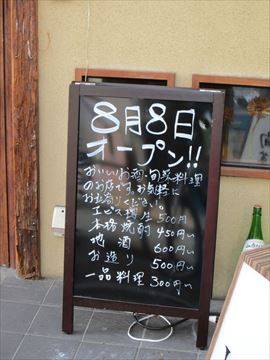 8月8日
オープン!!
おいしいお酒・旬菜料理
のお店です。お気軽に
お立寄りください。
エビス樽生 500円
本格焼酎 450円〜
地酒 600円〜
お造り 500円〜
一品料理 300円〜